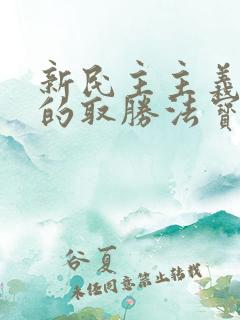 新民主主義
的取勝法寶
谷夏
未经同意禁止转载